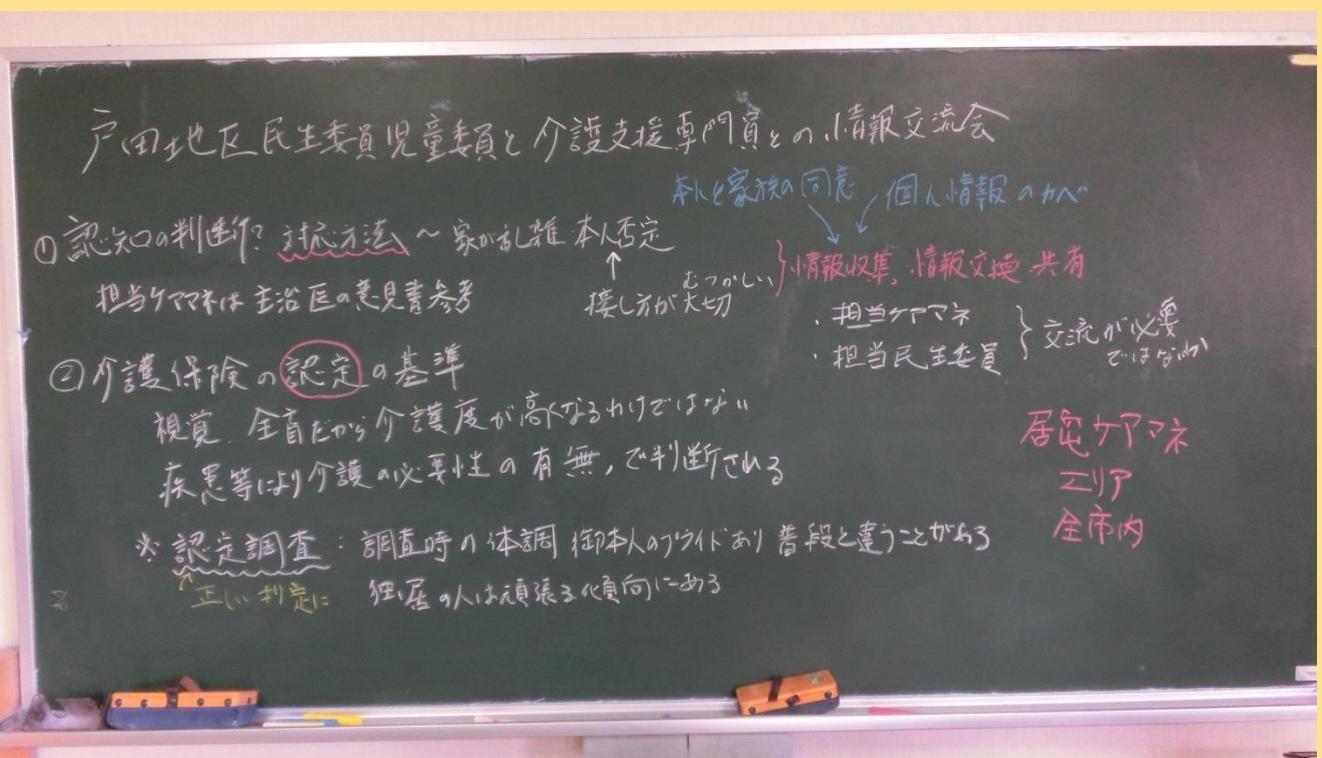 戸田地区民生委員児童委員と介護支援専門員との情報交流会
本人と家族の同意 個人情報のカベ
①認知の判断? 対応方法 〜 家が乱雑 本人否定
担当ケアマネは主治医の意見書参考
接し方が大切
むつかしい
情報収集、情報交換 共有
・担当ケアマネ
・担当民生委員
交流が必要
ではないか
②介護保険の認定の基準
視覚 全盲だから介護度が高くなるわけではない
疾患等により介護の必要性の有無,で判断される
※認定調査:調査時の体調 御本人のプライドあり 普段と違うことがある
正しい判定に 独居の人は頑張る傾向にある
居宅ケアマネ
エリア
全市内